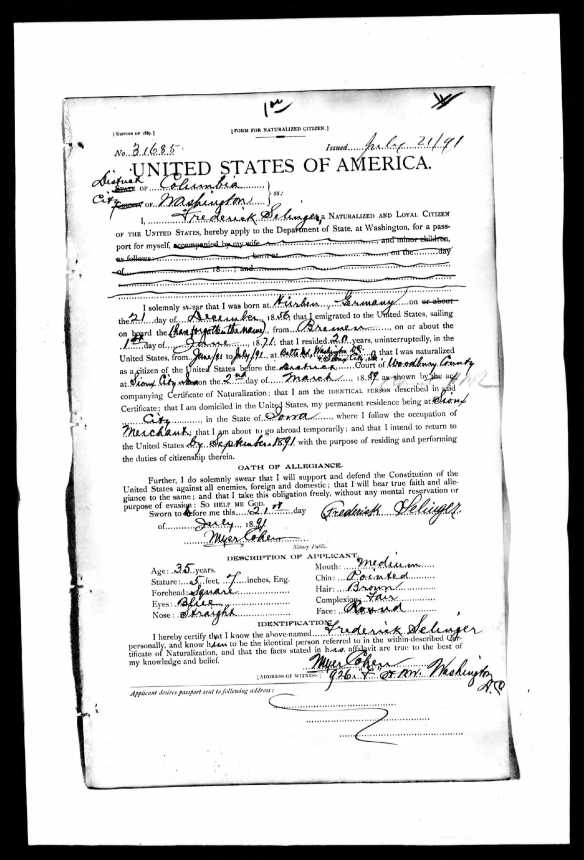 [EDITION OF 1889.] [FORM FOR NATURALIZED CITIZEN.]
No. 31685 Issued July 21/91
UNITED STATES OF AMERICA.
District OF Columbia
City OF Washington } ss:
I, Frederick Selinger, a NATURALIZED AND LOYAL CITIZEN
OF THE UNITED STATES, hereby apply to the Department of State, at Washington, for a pass-
port for myself, accompanied by my wife and minor children,
as follows: born at on the day
of 18 ; and
I solemnly swear that I was born at Germany on or about
the 21 day of December, 1856 that I emigrated to the United States, sailing
on board the (have forgotten the name), from Bremen on or about the
1st day of June, 1871; that I resided 20 years, uninterruptedly, in the
United States, from June/71 to July/91 at Washington D.C. & Sioux City, that I was naturalized
as a citizen of the United States before the District Court of Woodbury County
at Sioux City Iowa on the 2nd day of March, 1889 as shown by the
companying Certificate of Naturalization; that I am the IDENTICAL PERSON described in said
Certificate; that I am domiciled in the United States, my permanent residence being at Sioux
City, in the State of Iowa where I follow the occupation of
Merchant; that I am about to go abroad temporarily; and that I intend to return to
the United States by September 1891 with the purpose of residing and performing
the duties of citizenship therein.
OATH OF ALLEGIANCE.
Further, I do solemnly swear that I will support and defend the Constitution of the
United States against all enemies, foreign and domestic; that I will bear true faith and alle-
giance to the same; and that I take this obligation freely, without any mental reservation or
purpose of evasion: SO HELP ME GOD.
Sworn to before me this 21st day Frederick Selinger.
of July 1891
Myer Cohen
Notary Public.
DESCRIPTION OF APPLICANT.
Age: 35 years. Mouth: Medium
Stature: 5 feet, 7 inches, Eng. Chin: Pointed
Forehead: Square Hair: Brown
Eyes: Blue Complexion: Fair
Nose: Straight Face: Round
IDENTIFICATION.
I hereby certify that I know the above-named Frederick Selinger
personally, and know him to be the identical person referred to in the within-described Cer-
tificate of Naturalization, and that the facts stated in his affidavit are true to the best of
my knowledge and belief.
Myer Cohen
[ADDRESS OF WITNESS:] 926 F St. NW. Washington
D.C.
Applicant desires passport sent to following address: